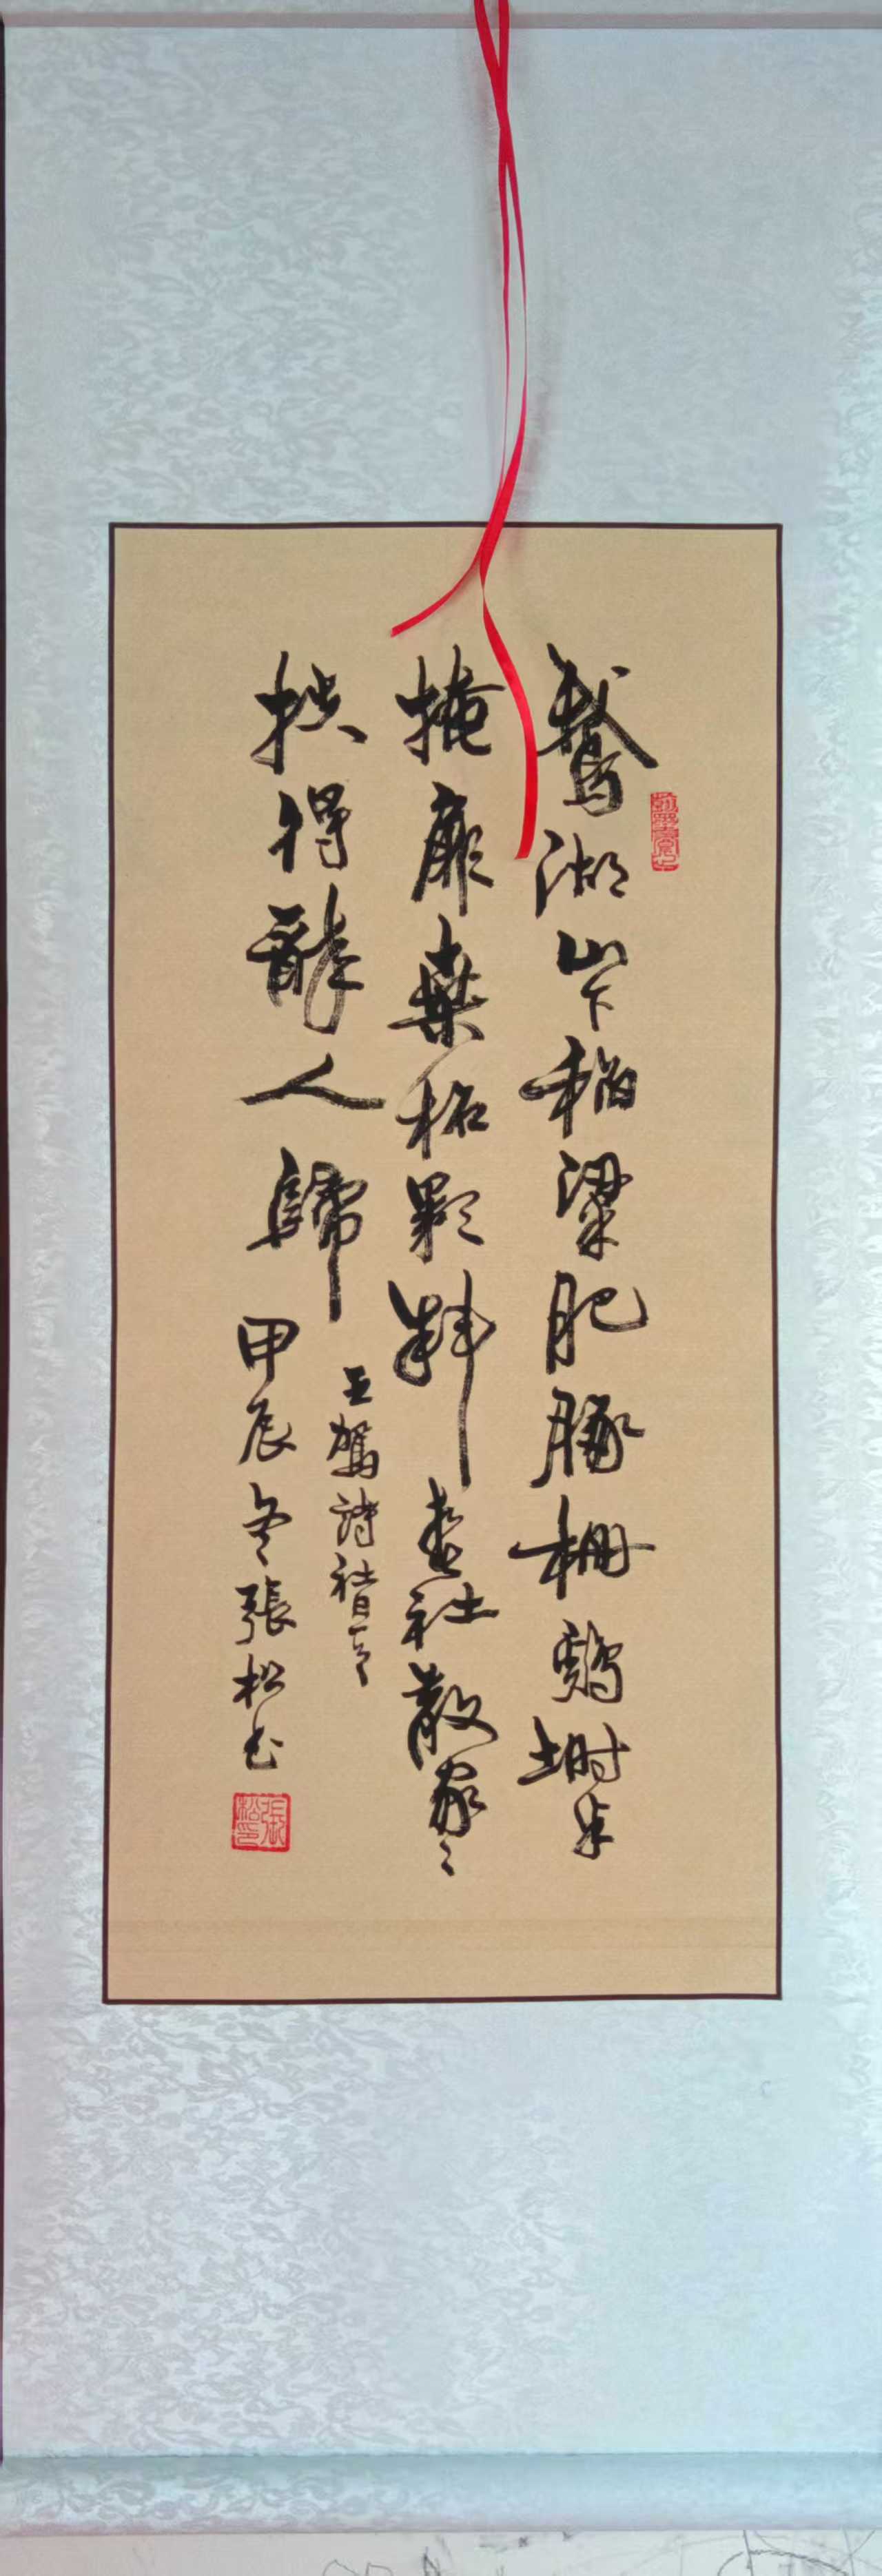 鵝湖山下稻粱肥豚柵鷄塒半
掩扉桑柘影斜春社散家々
扶得醉人歸
王駕詩社日
甲辰冬張松书
張松印